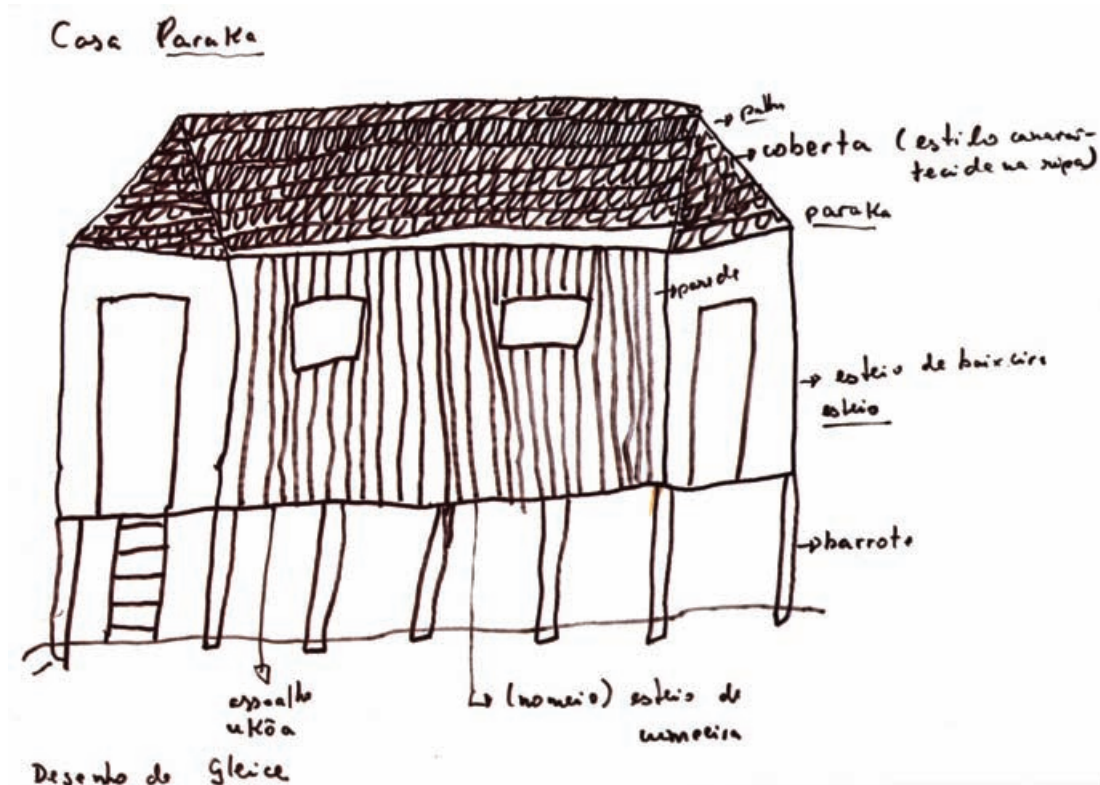 Casa Paraka
palha
coberta (estilo canaraí-
tecide na ripa)
paraka
parede
esteio de baixeira
esteio
barrote
assoalho
ukôa
(nomeio) esteio de
cumeeira
Desenho de Gleice